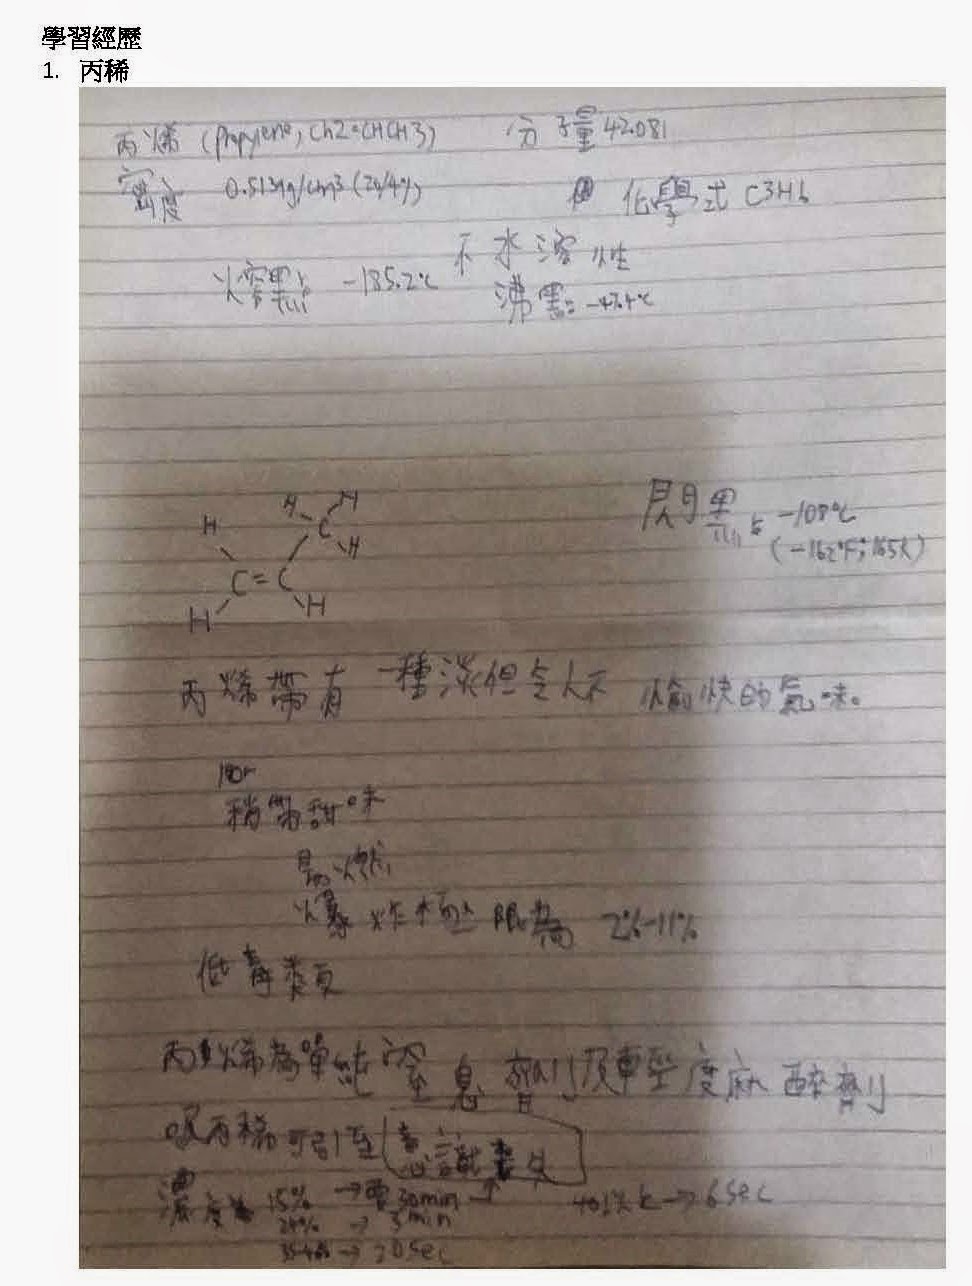 學習經歷
1. 丙稀
丙烯 (propylene, Ch2=CHCH3) 分子量42.081
密度 0.5139g/cm3 (20/4℃) 化學式 C3H6
不水溶性
火容點 -185.2℃ 沸點: -47.4℃
H H H
C H
C=C
H H
閃點 -108℃
(-162°F; 165K)
丙烯帶有一種淡但令人不愉快的氣味。
稍帶甜味
易燃
爆炸極限為 2%-11%
低毒類
丙烯為單純窒息劑及輕度麻醉劑
吸丙稀可引至意識喪失
濃度為 15% → 需30min 40%以上 → 6sec
24% → 3min
35-40% → 20sec